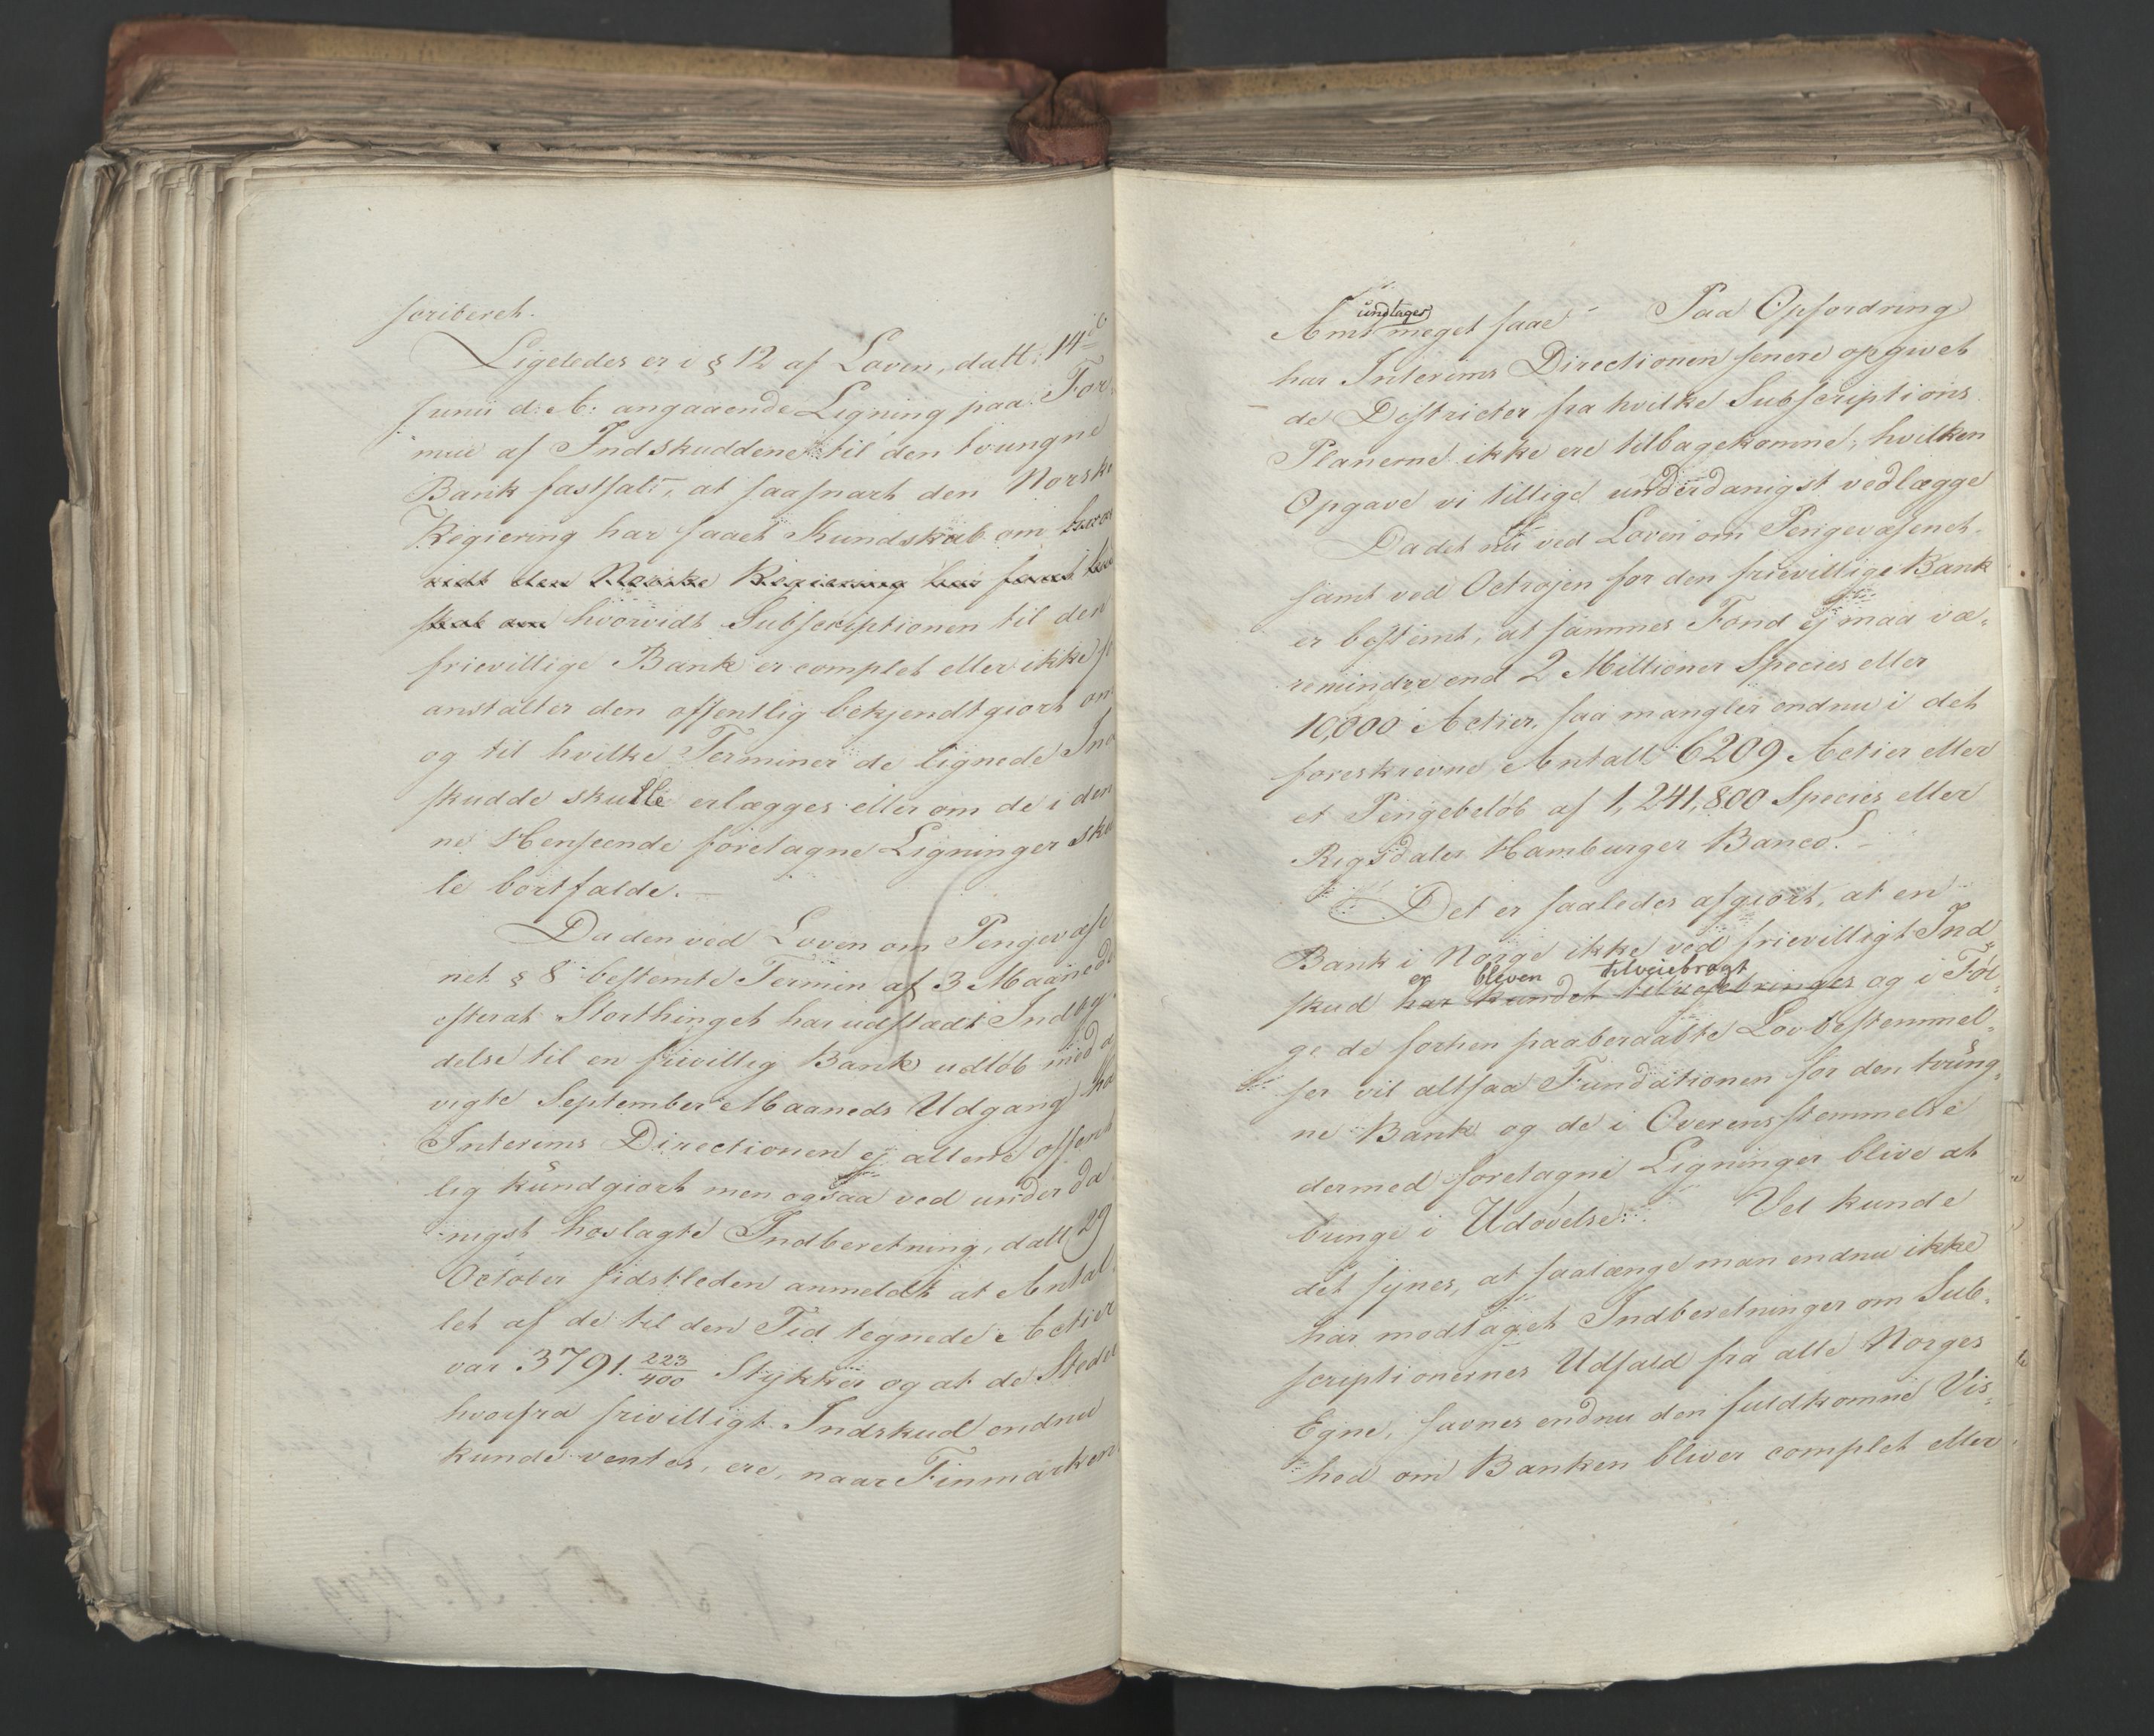 scriberet.
Ligeledes er i § 12 af Loven, datt: 14de
Junii d: A: angaaende Ligning paa For
mue af Indskuddene til den tvungne
Bank fastsat, at saasnart den Norske
Regiering har faaet Kundskab om hvor
vidt den Norske Regiering har faaet
skab om hvorvidt Subscriptionen til den
frievillige Bank er complet eller ikke
anstalter den offentlig bekjendtgiort om
og til hvilke Terminer de lignede Ind
skudde skulle erlægges eller om de i den
ne Henseende foretagne Ligninger skul
le bortfalde. –
Da den ved Loven om Pengevæse
net § 8 bestemte Termin af 3 Maaneder
efterat Storthinget har udstædt Indby
delse til en frivillig Bank udløb med a
vigte September Maaneds Udgang har
Interims Directionen ej allene offent
lig kundgiort men ogsaa ved underda
nigst hoslagte Indberetning, datt 29
October sidstleden anmeldt at Antal
let af de til den Tid tegnede Actier
var 3791. 223/400 Stykker og at de Steder
hvorfra frivilligt Indskud endnu
kunde ventes, ere, naar Finmarkens
Amt undtages meget faae – Paa Opfordring
har Interims Directionen senere opgivet
de Districter fra hvilke Subscriptions
Planerne ikke ere tilbagekomne, hvilken
Opgave vi tillige underdanigst vedlægge
Da det nu ved Loven om Pengevæsenet
samt ved Octrojen for den frievillige Bank
er bestemt, at sammes Fond ej maa væ-
re mindre end 2 Millioner Species eller
10,000 Actier, saa mangler endnu i det
foreskrevne Antall 6209 Actier eller
et Pengebeløb af 1,241,800 Species eller
Rigsdaler Hamburger Banco. –
Det er saaledes afgiort, at en
Bank i Norge ikke ved frievilligt Ind
er bleven tilveiebragt
skud har kundet tilvejebringes og i Føl-
ge de forhen paaberaabte Lovbestemmel-
ser vil altsaa Fundationen for den tvung-
ne Bank og de i Overensstemmelse
dermed foretagne Ligninger blive at
bringe i Udøvelse. Vel kunde
det synes, at saalænge man endnu ikke
har modtaget Indberetninger om Sub-
scriptionernes Udfald fra alle Norges
Egne, savnes endnu den fuldkomne Vis-
hed om Banken bliver complet eller